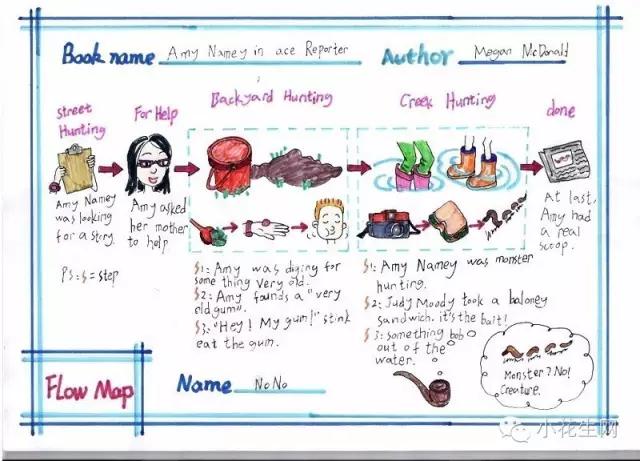 Book name Amy Namey in ace Reporter
Author Megan McDonald
street Hunting
For Help
Backyard Hunting
Creek Hunting
done
Amy Namey
was looking
for a story.
Amy asked
her mother
to help
At last,
Amy had
a real
scoop.
PS: S = step
S1: Amy was diging for
some thing very old.
S2: Amy founds a "very
old gum".
S3: "Hey! My gum!" stink
eat the gum.
S1: Amy Namey was monster
hunting.
S2: Judy Moody took a baloney
sandwich. it's the bait!
S3: something bob
out of the
water.
Monster? No!
Creature.
Flow Map
Name NoNo
小花生网